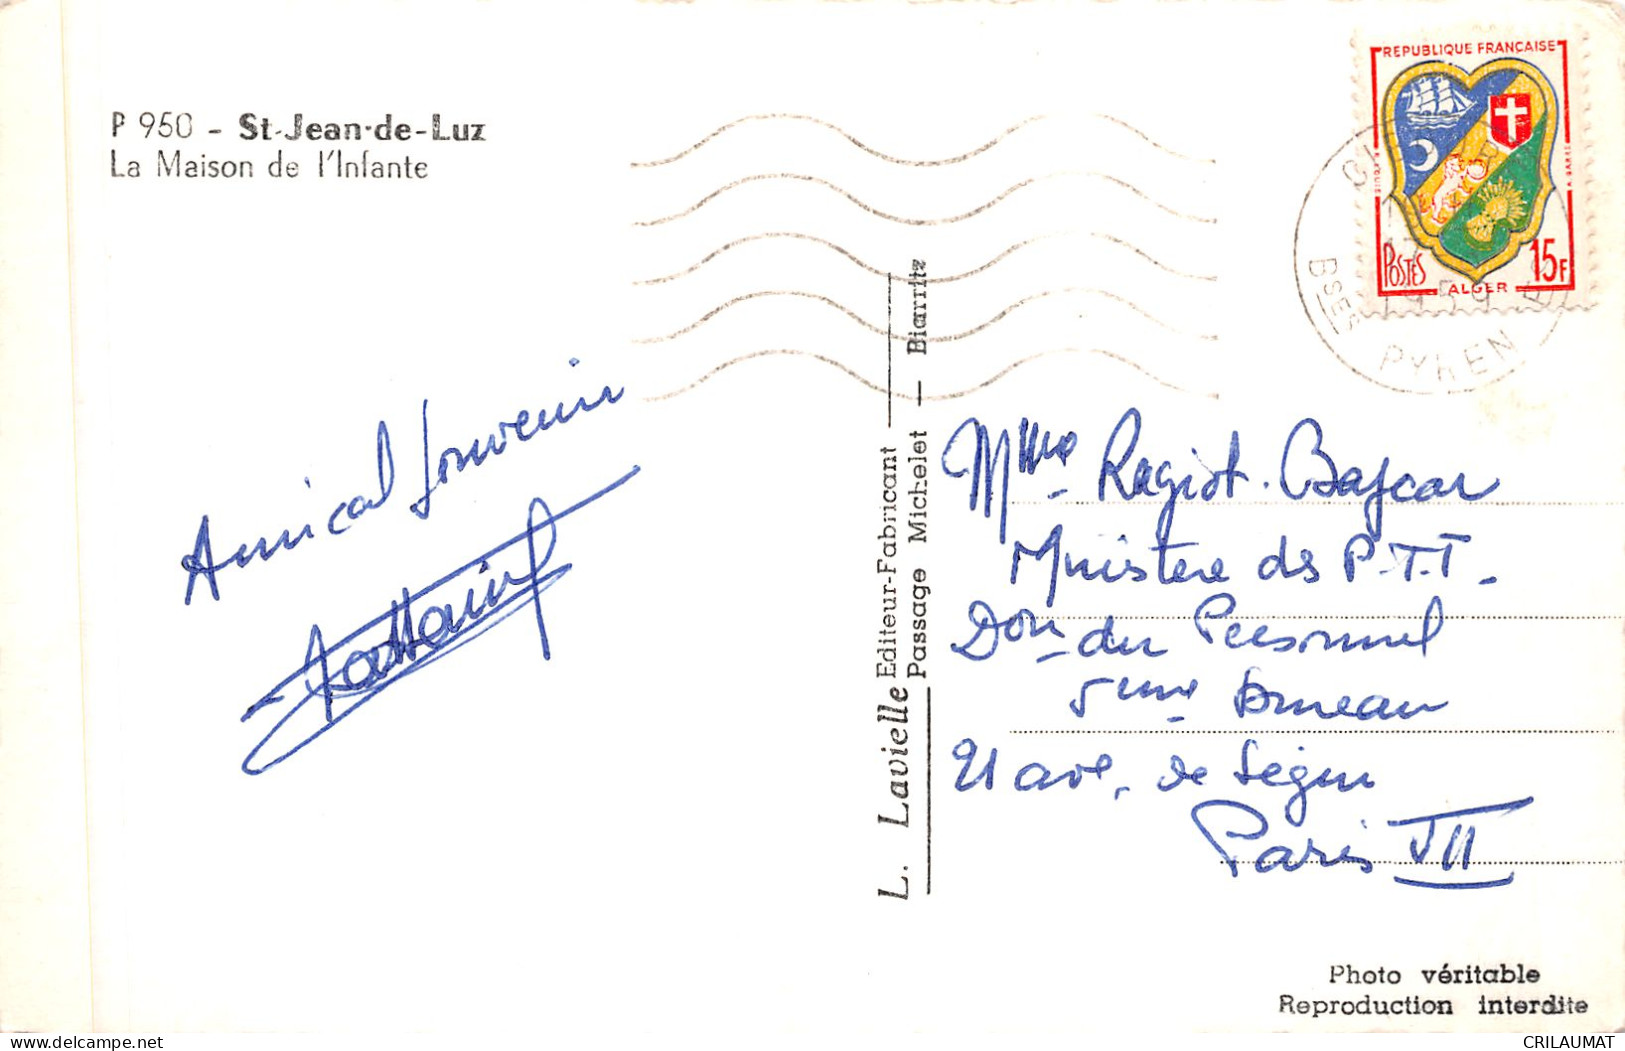 P 950 - St-Jean-de-Luz
La Maison de l'Infante
Amical souvenir
L. Lavielle Editeur-Fabricant
Passage Michelet - Biarritz
REPUBLIQUE FRANÇAISE
POSTES
15F
ALGER
1959
BSES PYREN
Mme Ragiot-Bascar
Ministère des P.T.T.
Don du Personnel
5ème bureau
21 ave. de Ségur
Paris VII
Photo véritable
Reproduction interdite
delcampe.net
CRILAUMAT